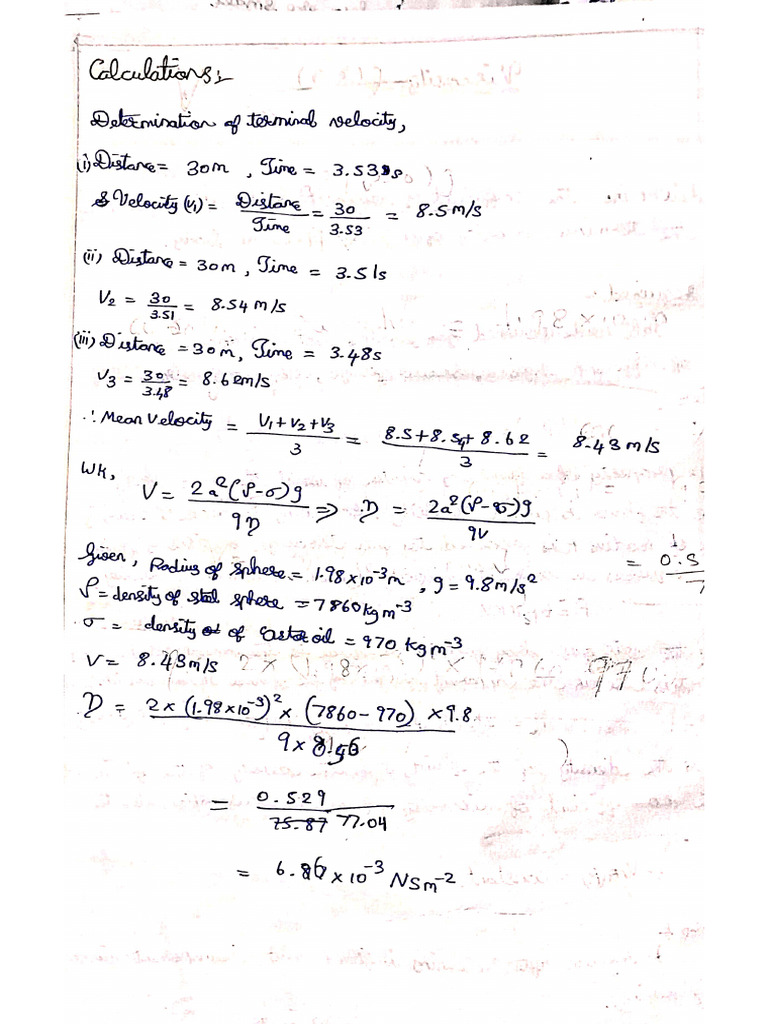 Calculations:
Determination of terminal velocity,
(i) Distance = 30m , Time = 3.53s
Velocity (V₁) = Distance/Time = 30/3.53 = 8.5 m/s
(ii) Distance = 30m , Time = 3.51s
V₂ = 30/3.51 = 8.54 m/s
(iii) Distance = 30m, Time = 3.48s
V₃ = 30/3.48 = 8.62m/s
∴ Mean Velocity = V₁+V₂+V₃/3 = 8.5+8.54+8.62/3 = 8.43 m/s
WK,
V = 2a²(ρ-σ)g/9η ⇒ η = 2a²(ρ-σ)g/9V
Given, Radius of sphere = 1.98×10⁻³m , g = 9.8m/s²
= 0.5
ρ = density of steel sphere = 7860kgm⁻³
σ = density of castor oil = 970 kgm⁻³
V = 8.43m/s
η = 2×(1.98×10⁻³)²×(7860-970)×9.8/9×8.56
= 0.529/75.87 77.04
= 6.86×10⁻³ NSm⁻²